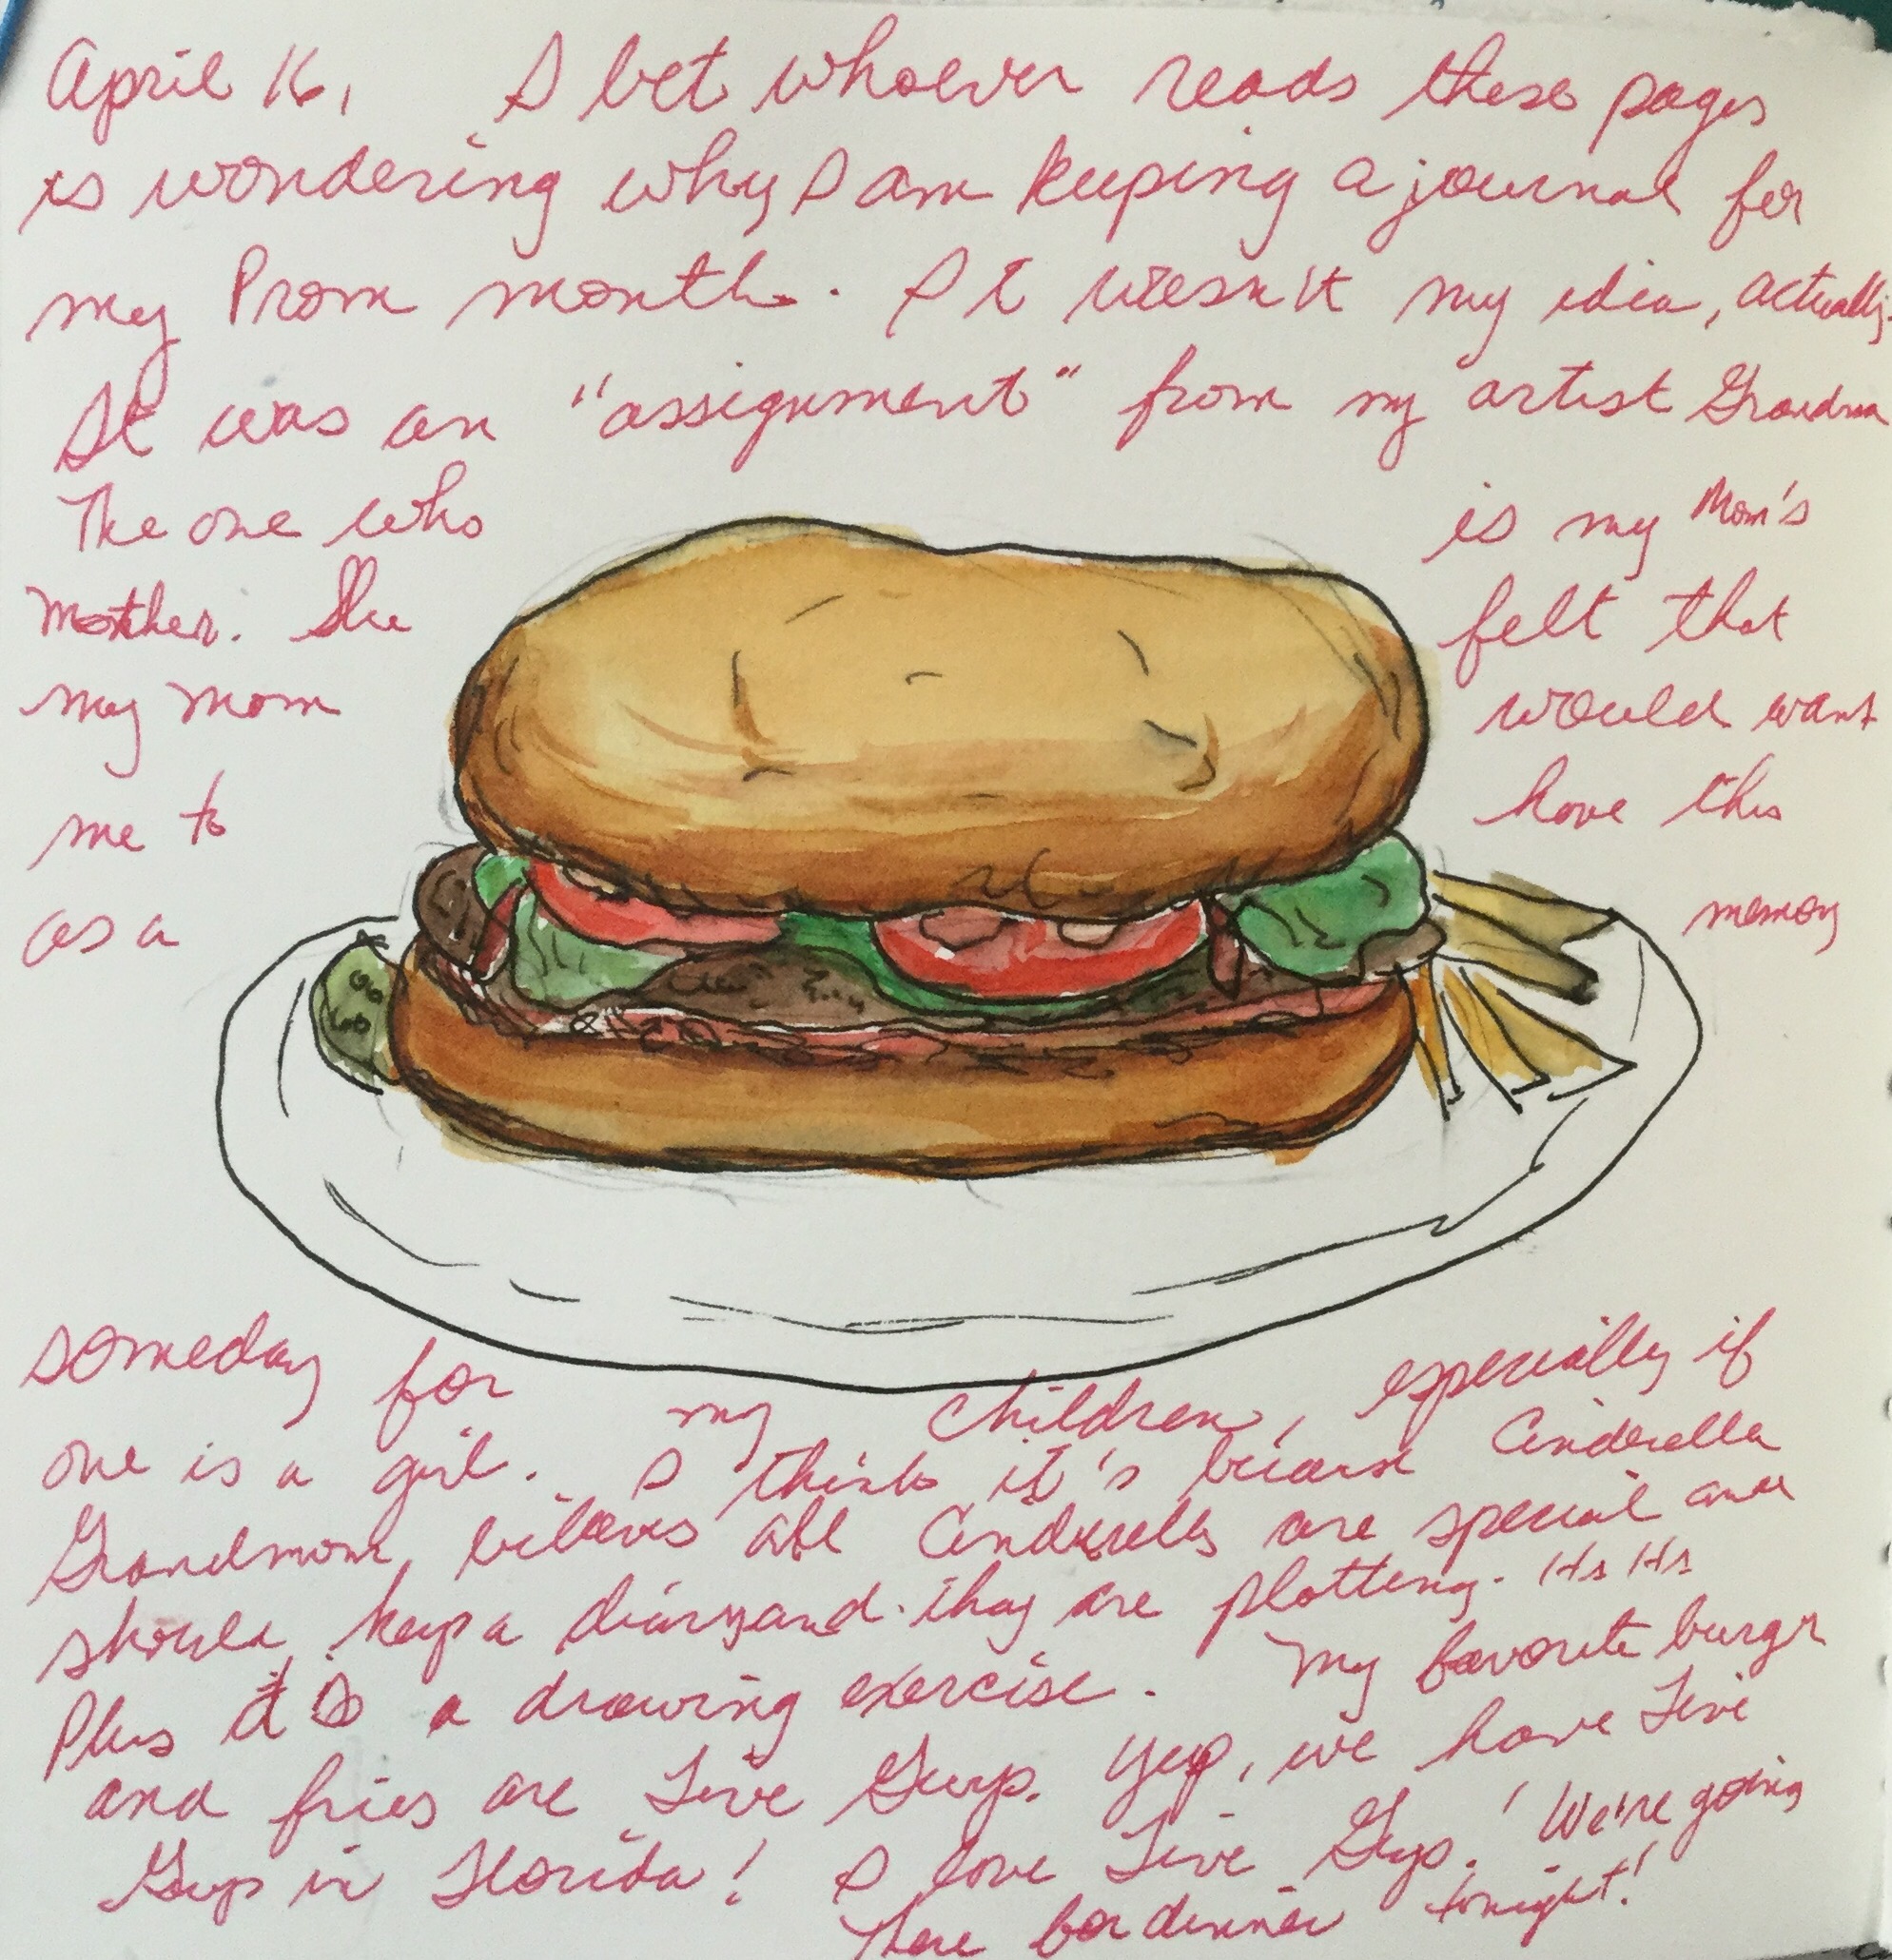 April 16, I bet whoever reads these pages
is wondering why I am keeping a journal for
my Prom month. It wasn't my idea, actually.
It was an "assignment" from my artist Grandma
The one who is my Mom's
Mother. She felt that
my mom would want
me to have this
as a memory
someday for my children, especially if
one is a girl. I think it's because Cinderella
Grandmom, believes all Cinderellas are special and
should keep a diary and they are plotting. Ha Ha
Plus it is a drawing exercise. My favorite burger
and fries are Five Guys. Yup, we have Five
Guys in Florida! I love Five Guys! We're going
there for dinner tonight!